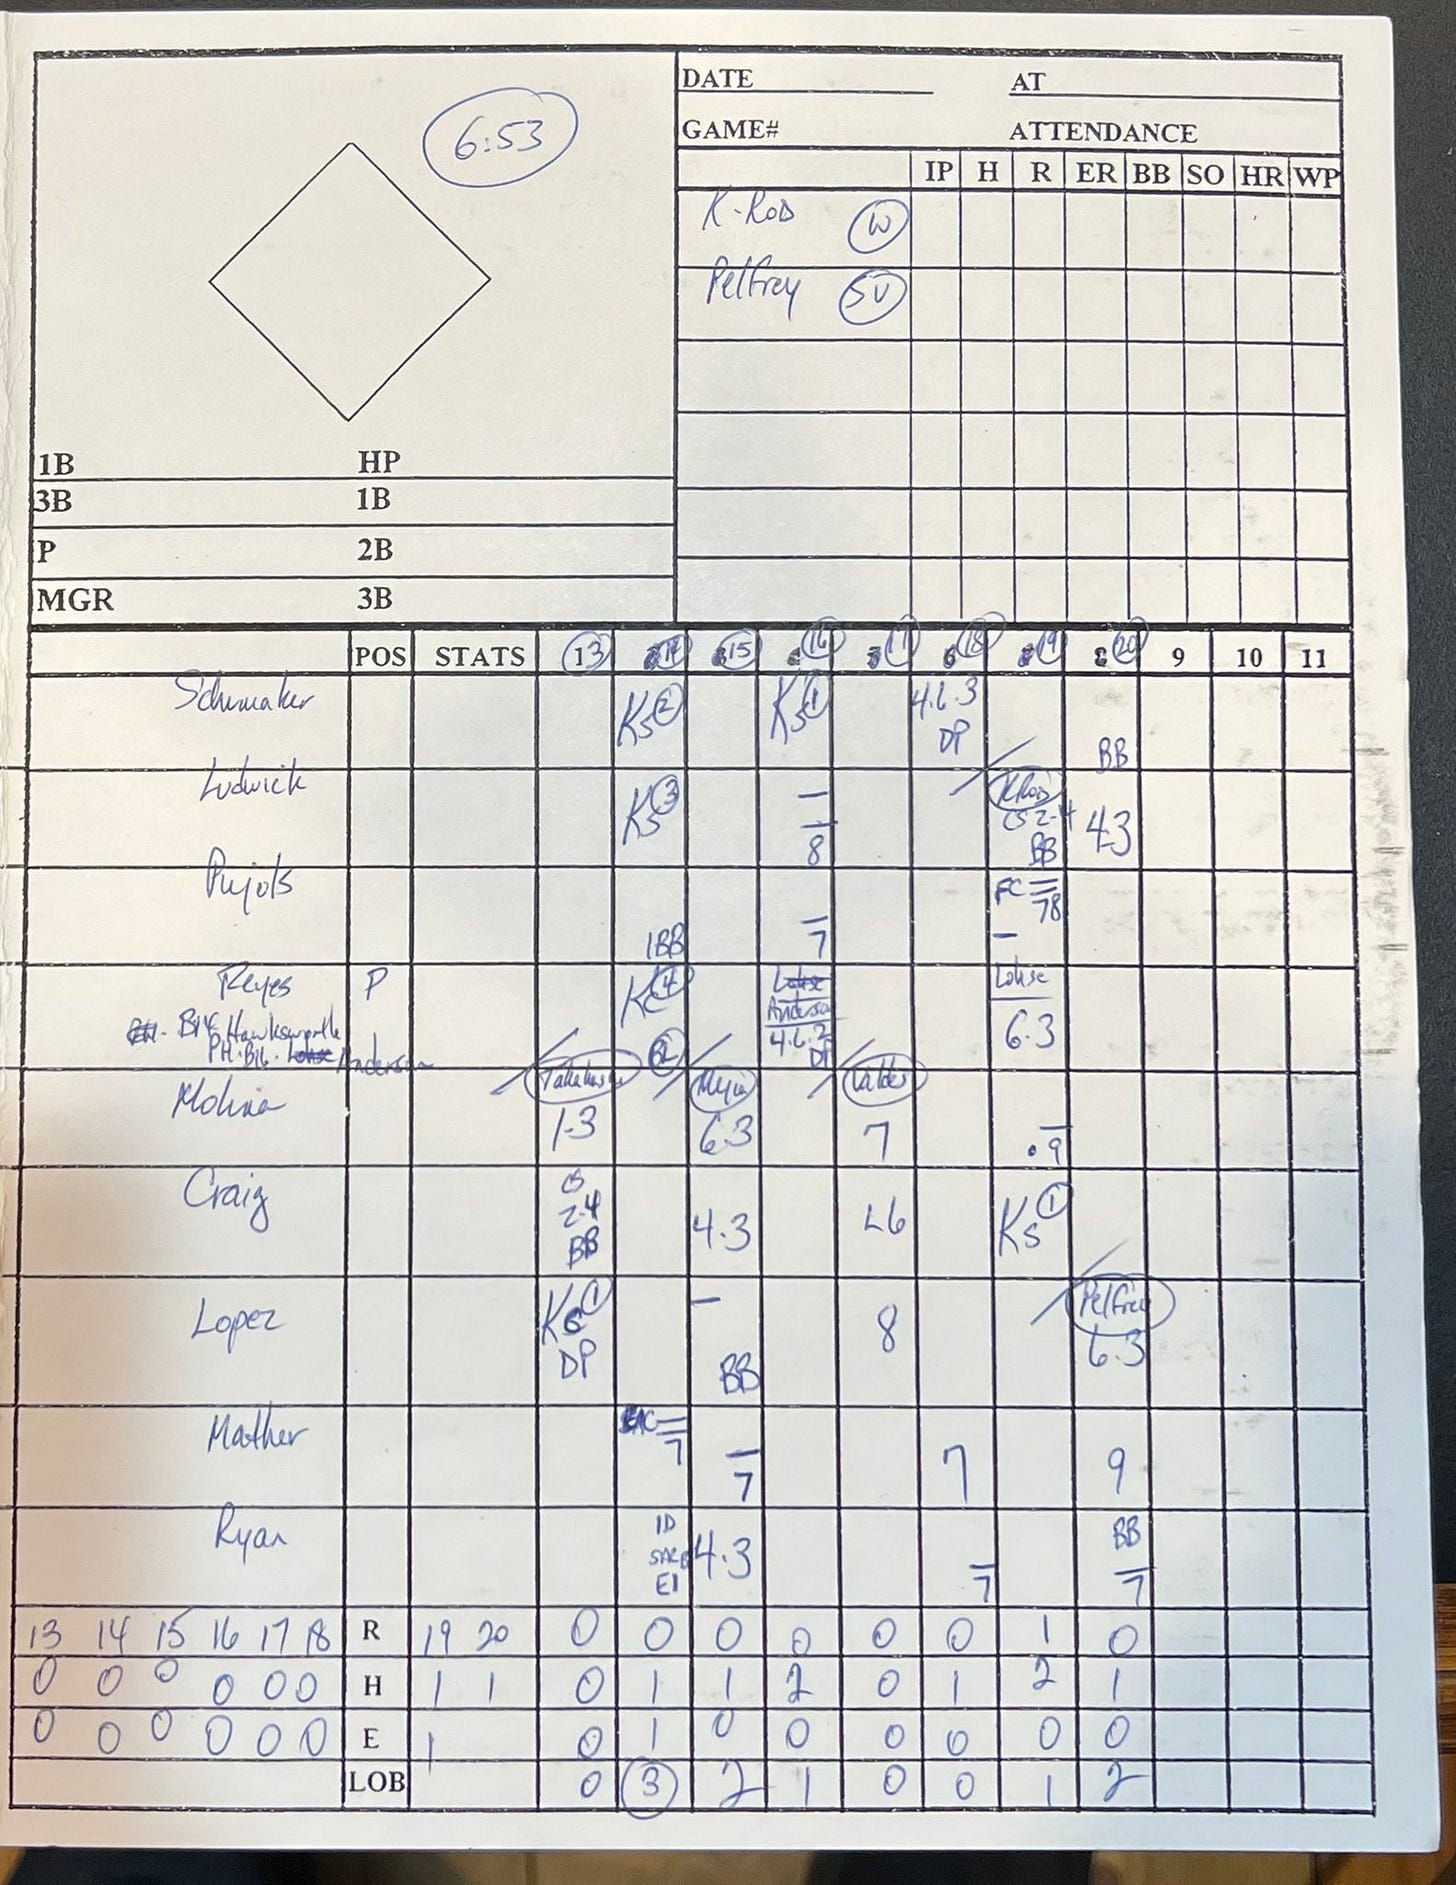 6:53
DATE AT
GAME# ATTENDANCE
IP H R ER BB SO HR WP
K-Rod W
Pelfrey SV
1B HP
3B 1B
P 2B
MGR 3B
POS STATS 13 14 15 16 17 18 19 20 9 10 11
Schumaker Ks 2 Ks 1 4.6.3 DP BB
Ludwick Ks 3 8 K Rod CS 2-4 BB 43
Pujols IBB 7 FC 78
Reyes P Kc 4 Lohse Anderson 4.6.3 DP Lohse 6.3
B14 Hawksworth
PH. B16. Lohse Anderson
Molina 1.3 6.3 7 9
Craig 2-4 BB 4.3 L6 Ks 1
Lopez K 1 DP BB 8 Pelfrey 6.3
Mather 7 7 7 9
Ryan SAC E1 4.3 7 BB 7
13 14 15 16 17 18 R 19 20 0 0 0 0 0 0 1 0
0 0 0 0 0 0 H 1 1 0 1 1 2 0 1 2 1
0 0 0 0 0 0 E 1 0 1 0 0 0 0 0 0
LOB 0 3 2 1 0 0 1 2